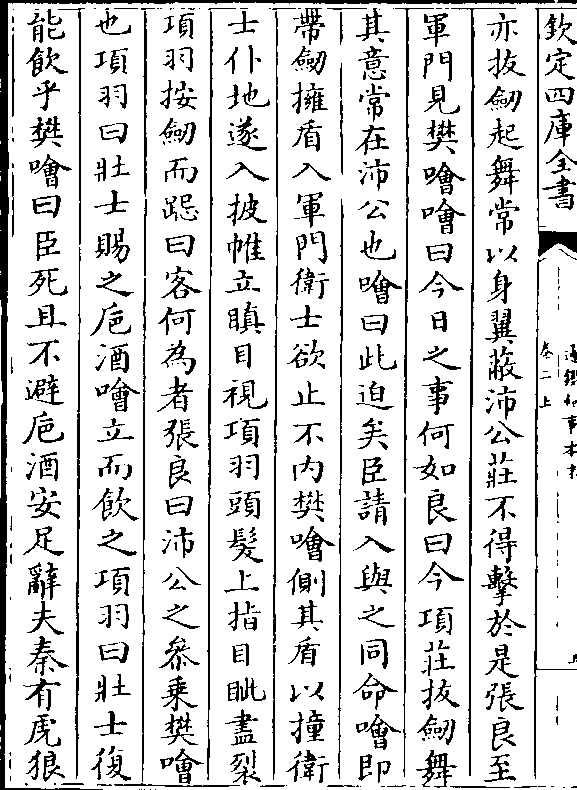 欽定四庫全書
卷二上
亦拔劒起舞常以身翼蔽沛公莊不得擊於是張良至
軍門見樊噲噲曰今日之事何如良曰今項莊拔劒舞
其意常在沛公也噲曰此迫矣臣請入與之同命噲即
帶劒擁盾入軍門衛士欲止不内樊噲側其盾以撞衛
士仆地遂入披帷立瞋目視項羽頭髮上指目眦盡裂
項羽按劒而跽曰客何為者張良曰沛公之叅乗樊噲
也項羽曰壯士賜之巵酒噲立而飲之項羽曰壯士復
能飲乎樊噲曰臣死且不避巵酒安足辭夫秦有虎狼